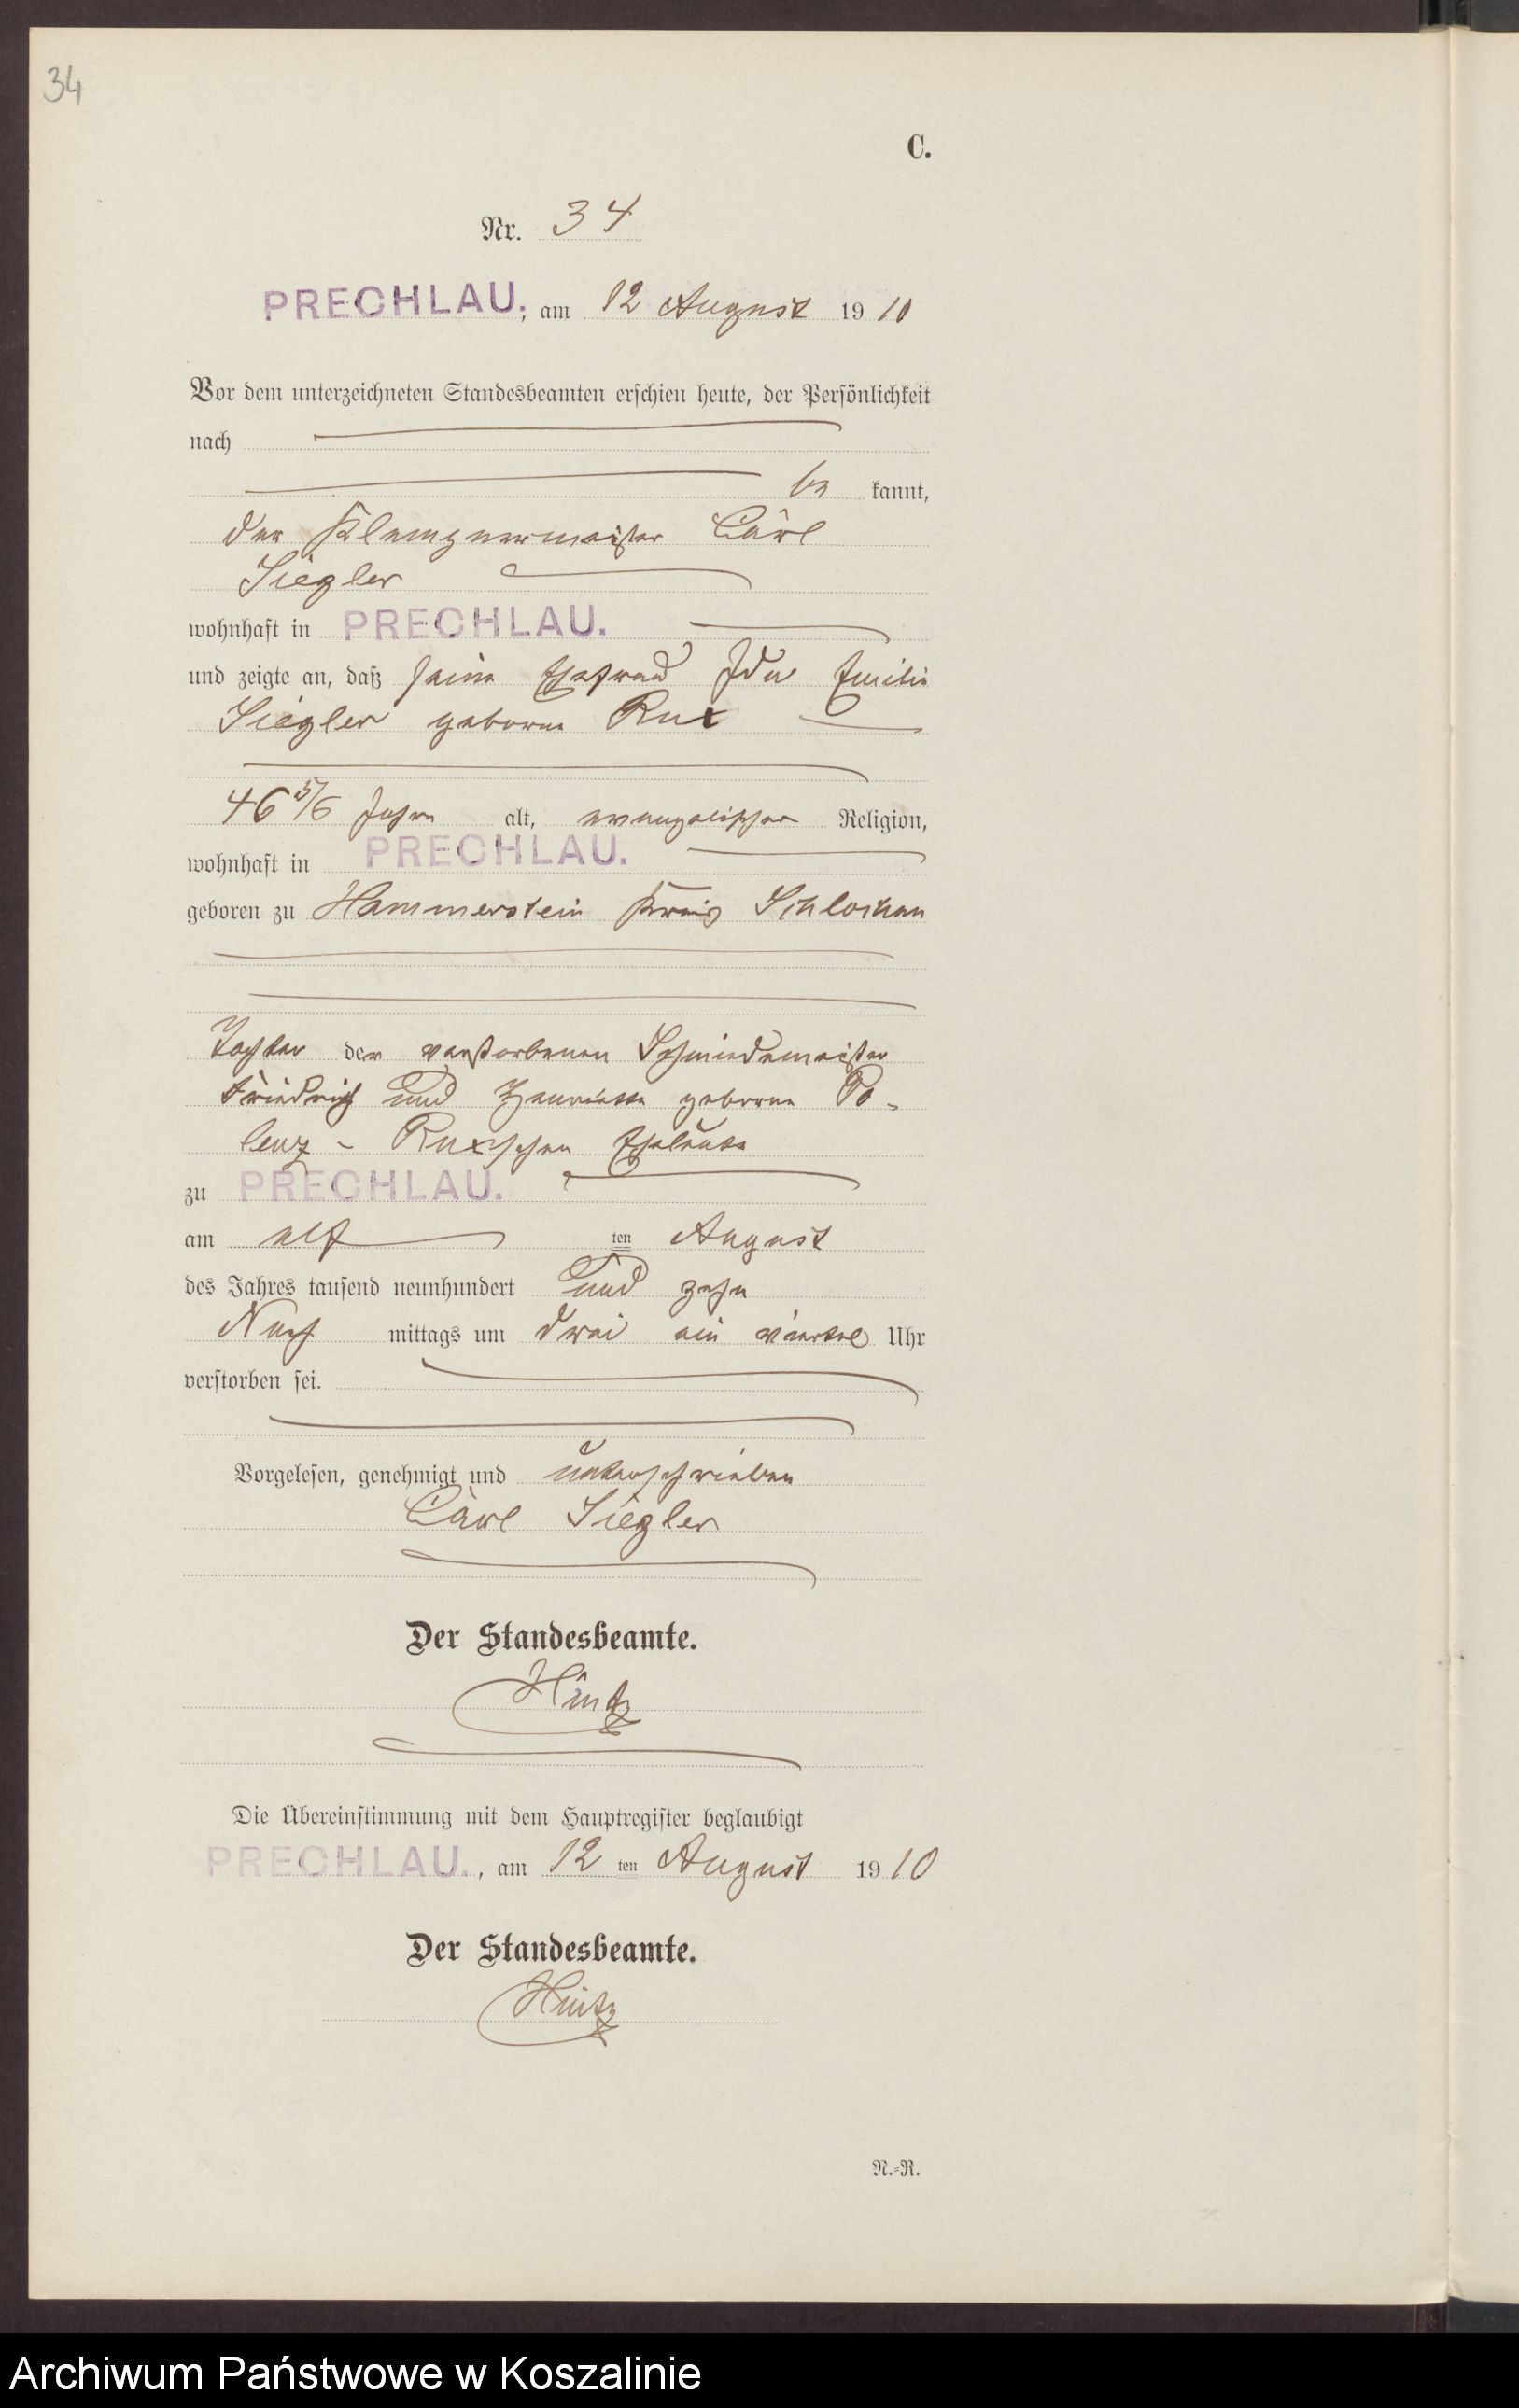 34
C.
Nr. 34
PRECHLAU., am 12 August 19 10
Vor dem unterzeichneten Standesbeamten erschien heute, der Persönlichkeit
nach
be kannt,
der Klempnermeister Carl
Siegler
wohnhaft in PRECHLAU.
und zeigte an, daß seine Ehefrau Ida Emilie
Siegler geborne Rux
46 5/6 Jahre alt, evangelischer Religion,
wohnhaft in PRECHLAU.
geboren zu Hammerstein Kreis Schlochau
Tochter der verstorbenen Schmiedemeister
Friedrich und Henriette geborne Po-
lenz - Rux'schen Eheleute
zu PRECHLAU.
am elf ten August
des Jahres tausend neunhundert und zehn
Nach mittags um drei ein viertel Uhr
verstorben sei.
Vorgelesen, genehmigt und unterschrieben
Carl Siegler
Der Standesbeamte.
Hintz
Die Übereinstimmung mit dem Hauptregister beglaubigt
PRECHLAU., am 12 ten August 19 10
Der Standesbeamte.
Hintz
N.=R.
Archiwum Państwowe w Koszalinie